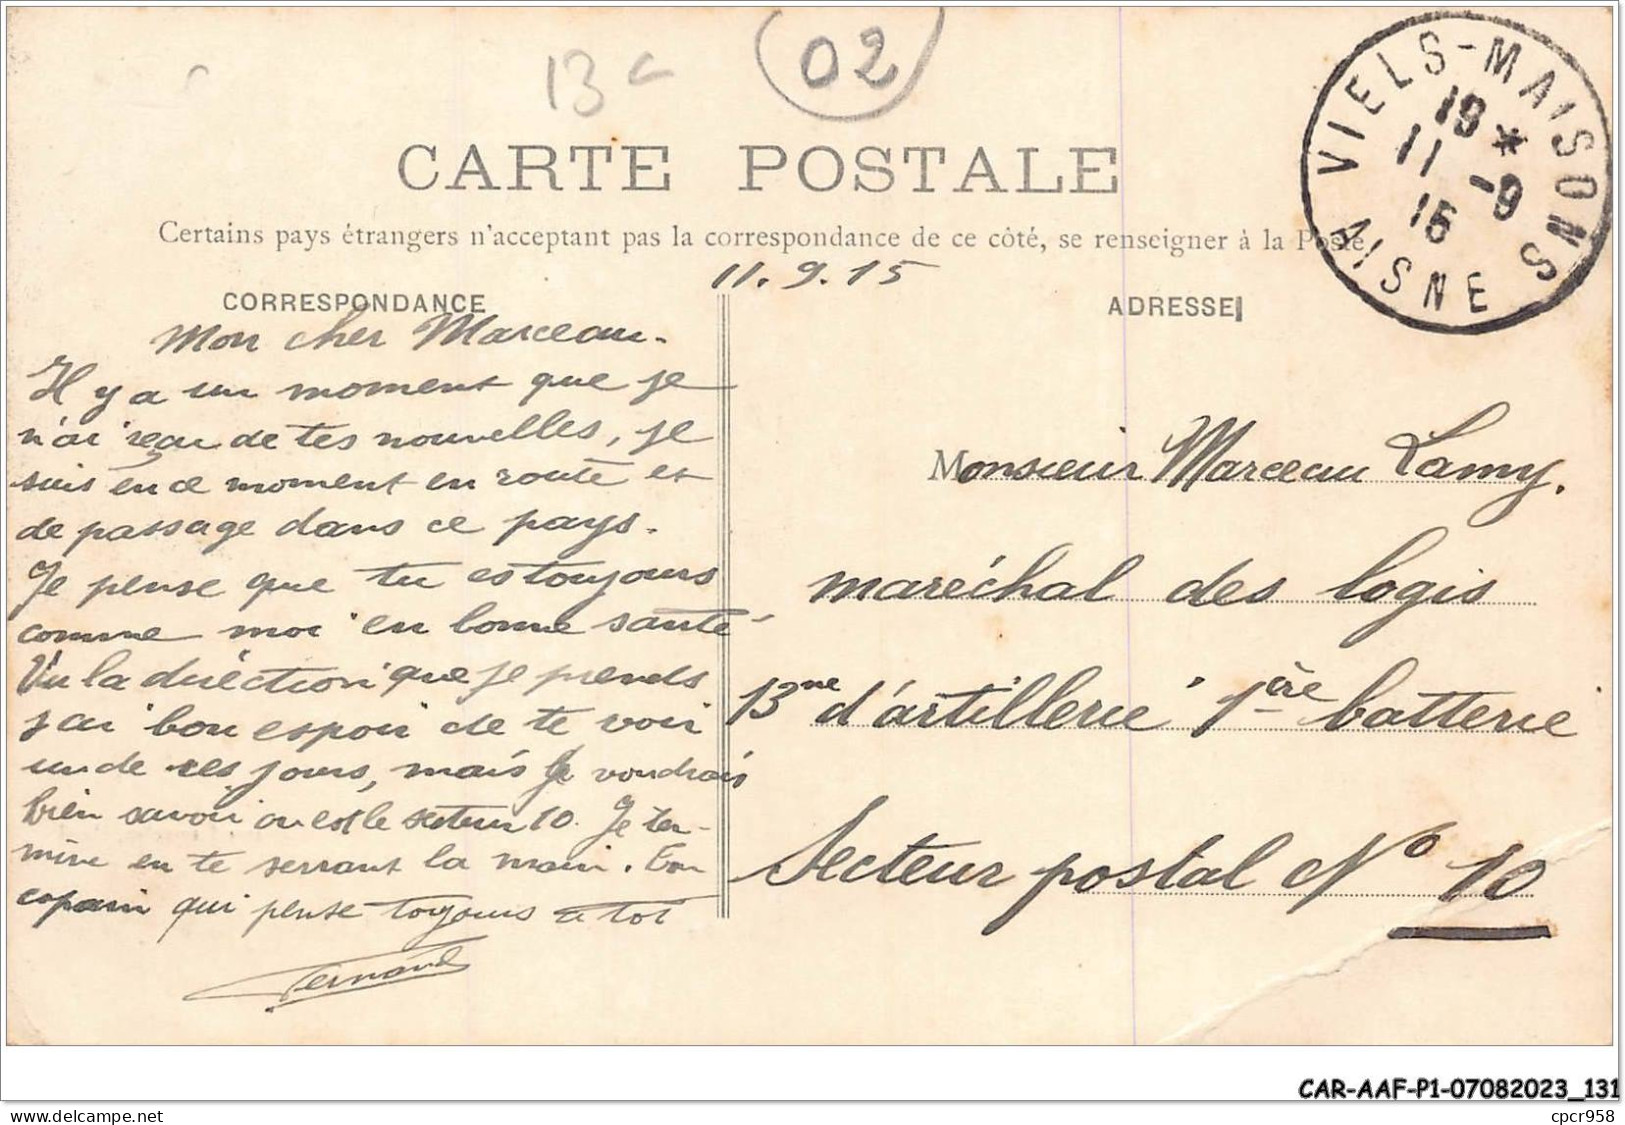 13 c
02
VIELS-MAISONS
19 *
11 -9
15
AISNE
CARTE POSTALE
Certains pays étrangers n'acceptant pas la correspondance de ce côté, se renseigner à la Poste
11.9.15
CORRESPONDANCE
Mon cher Marceau.
Il y a un moment que je
n'ai reçu de tes nouvelles, je
suis en ce moment en route et
de passage dans ce pays.
Je pense que tu es toujours
comme moi en bonne santé
Vu la direction que je prends
j'ai bon espoir de te voir
un de ces jours, mais je voudrais
bien savoir ou est le secteur 10. Je ter-
mine en te serrant la main. Ton
copain qui pense toujours à toi
Fernand
ADRESSE
Monsieur Marceau Lamy.
maréchal des logis
13me d'artillerie 1ère batterie
Secteur postal No 10
CAR-AAF-P1-07082023_131
delcampe.net
cpcr958